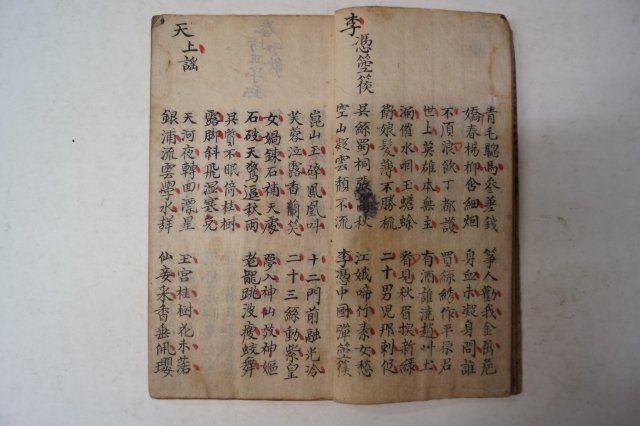 青毛驄馬參差錢
嬌春楊柳含細烟
箏人勸我金屈卮
身血未凝身問誰
不須浪飲丁都護
世上英雄本無主
買絲綉作平原君
有酒誰澆趙州土
漏催水咽玉蟾蜍
衛娘髮薄不勝梳
看見秋眉換新綠
二十男兒那刺促
李憑箜篌
吳絲蜀桐張秋
空山凝雲頹不流
江娥啼竹素女愁
李憑中國彈箜篌
崑山玉碎鳳凰叫
芙蓉泣露香蘭笑
十二門前融光冷
二十三絲動紫皇
女媧鍊石補天處
石破天驚逗秋雨
夢入神仙教神嫗
老跳波瘦蛟舞
吳質不眠倚桂樹
露脚斜飛濕寒兔
天上謠
天河夜轉回漂星
銀浦流雲學水聲
玉宮桂樹花未落
仙妾采香垂珮瓔